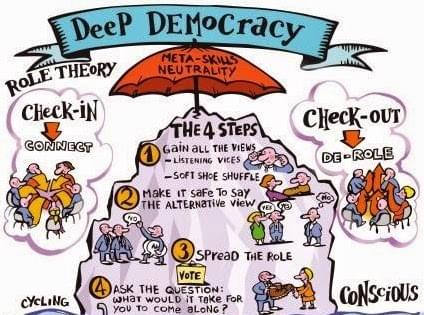 DeeP DEMoCRacy
META-SKILLS
NEUTRALITY
ROLE THEORY
CHeck-iN
CONNECT
CHeck-ouT
DE-ROLE
THE 4 STEPS
1 Gain all the views
- LISTENING VICES
- SOFT SHOE SHUFFLE
2 Make it safe to say
THE ALTERNATIVE VIEW
NO
YES
YES
NO
3 SPREAD THE ROLE
VOTE
4 ASK THE QUESTION:
WHAT WOULD IT TAKE FOR
YOU TO COME ALONG?
CYCLING
CONSCIOUS